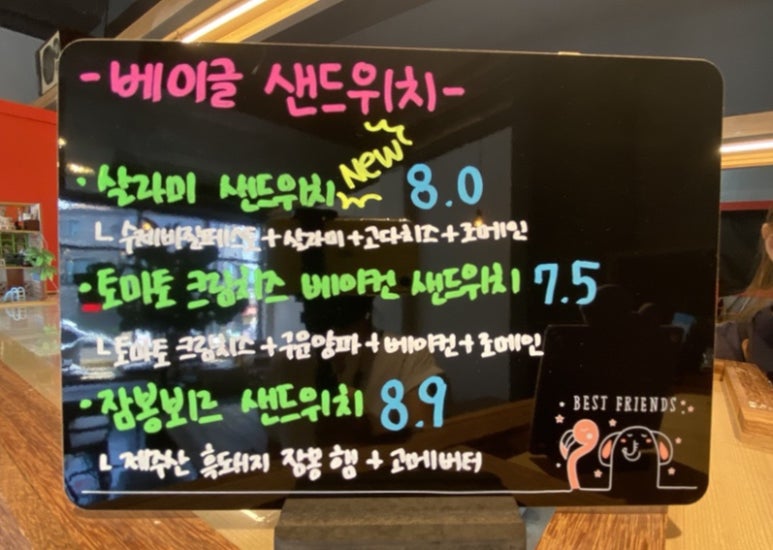 -베이글 샌드위치-
New
·살라미 샌드위치 8.0
ㄴ 수제바질페스토+살라미+고다치즈+로메인
·토마토 크림치즈 베이컨 샌드위치 7.5
ㄴ토마토 크림치즈+구운양파+베이컨+로메인
·잠봉뵈르 샌드위치 8.9
ㄴ 제주산 흑돼지 잠봉 햄 + 고메버터
· BEST FRIENDS ·